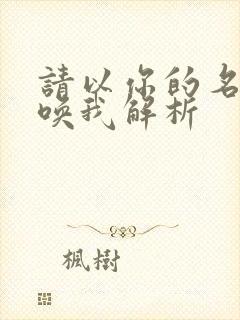 請以你的名
喚我解析
楓樹